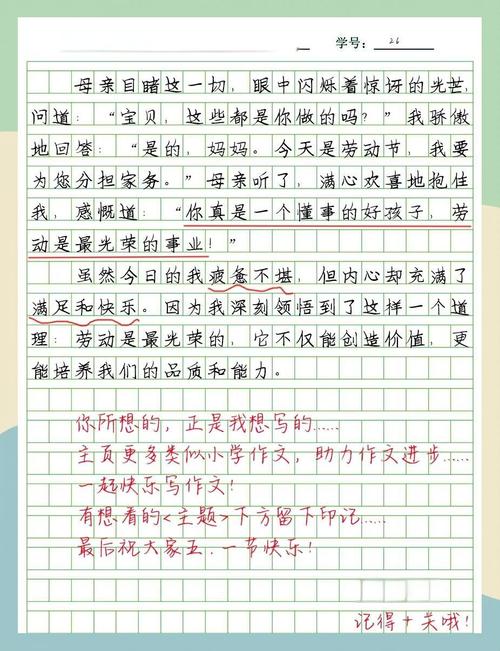 学号：26
母亲目睹这一切，眼中闪烁着惊讶的光芒，
问道：“宝贝，这些都是你做的吗？”我骄傲
地回答：“是的，妈妈。今天是劳动节，我要
为您分担家务。”母亲听了，满心欢喜地抱住
我，感慨道：“你真是一个懂事的好孩子，劳
动是最光荣的事业！”
虽然今日的我疲惫不堪，但内心却充满了
满足和快乐。因为我深刻领悟到了这样一个道
理：劳动是最光荣的，它不仅能创造价值，更
能培养我们的品质和能力。
你所想的，正是我想写的……
主页更多类似小学作文，助力作文进步……
一起快乐写作文！
有想看的<主题>下方留下印记……
最后祝大家五.一节快乐！
记得+关哦！